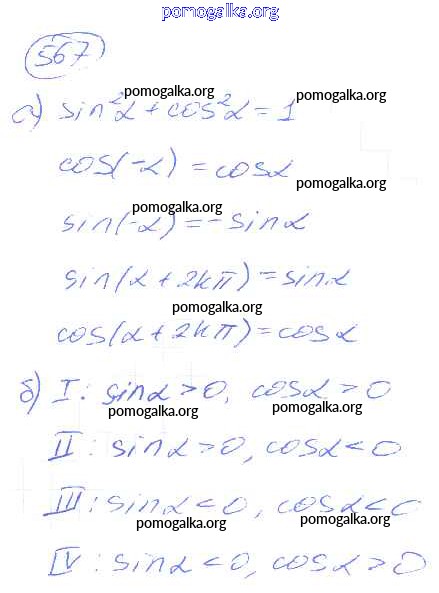 pomogalka.org
567
pomogalka.org
а) sin²α + cos²α = 1 pomogalka.org
cos(-α) = cosα
pomogalka.org
pomogalka.org
sin(-α) = -sinα
sin(α + 2kπ) = sinα
pomogalka.org
cos(α + 2kπ) = cosα
б) I: sinα > 0, cosα > 0
pomogalka.org pomogalka.org
II: sinα > 0, cosα < 0
III: sinα < 0, cosα < 0
pomogalka.org pomogalka.org
IV: sinα < 0, cosα > 0